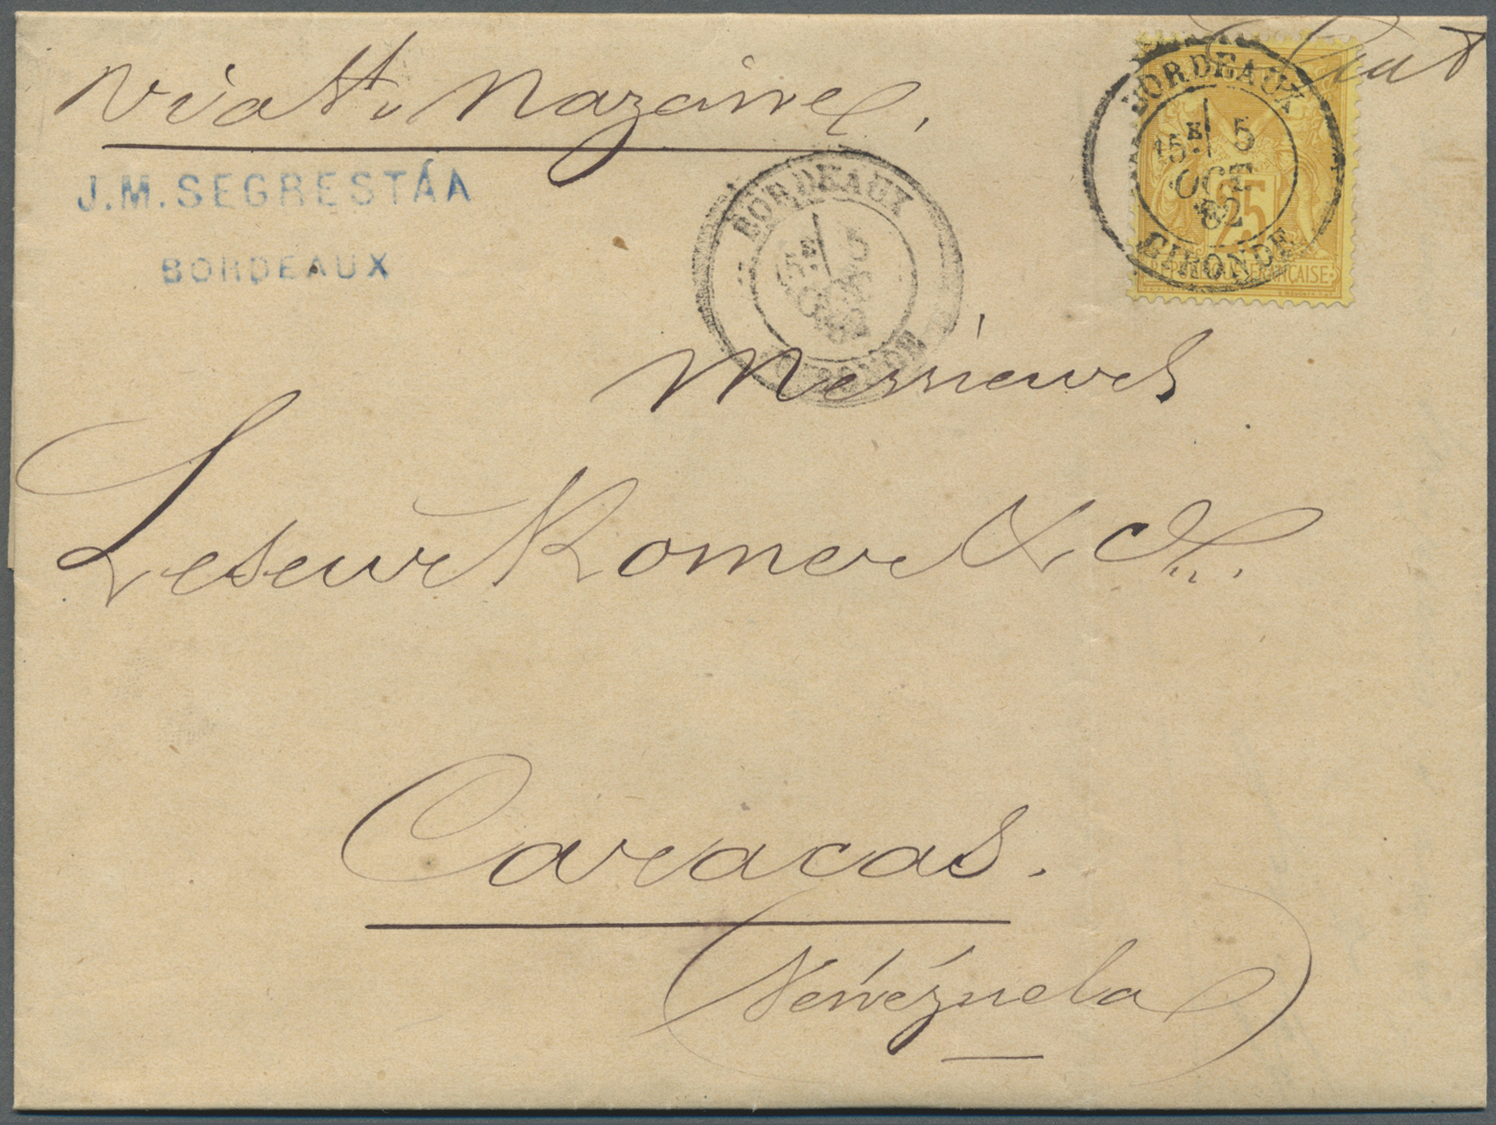 via St. Nazaire.
J.M. SEGRESTÁA
BORDEAUX
BORDEAUX
5E 5
OCT
82
GIRONDE
25
REPUBLIQUE FRANÇAISE
BORDEAUX
5E 5
OCT
82
GIRONDE
Messieurs
Leseur Romer & Cie.
Caracas.
(Vénézuela)